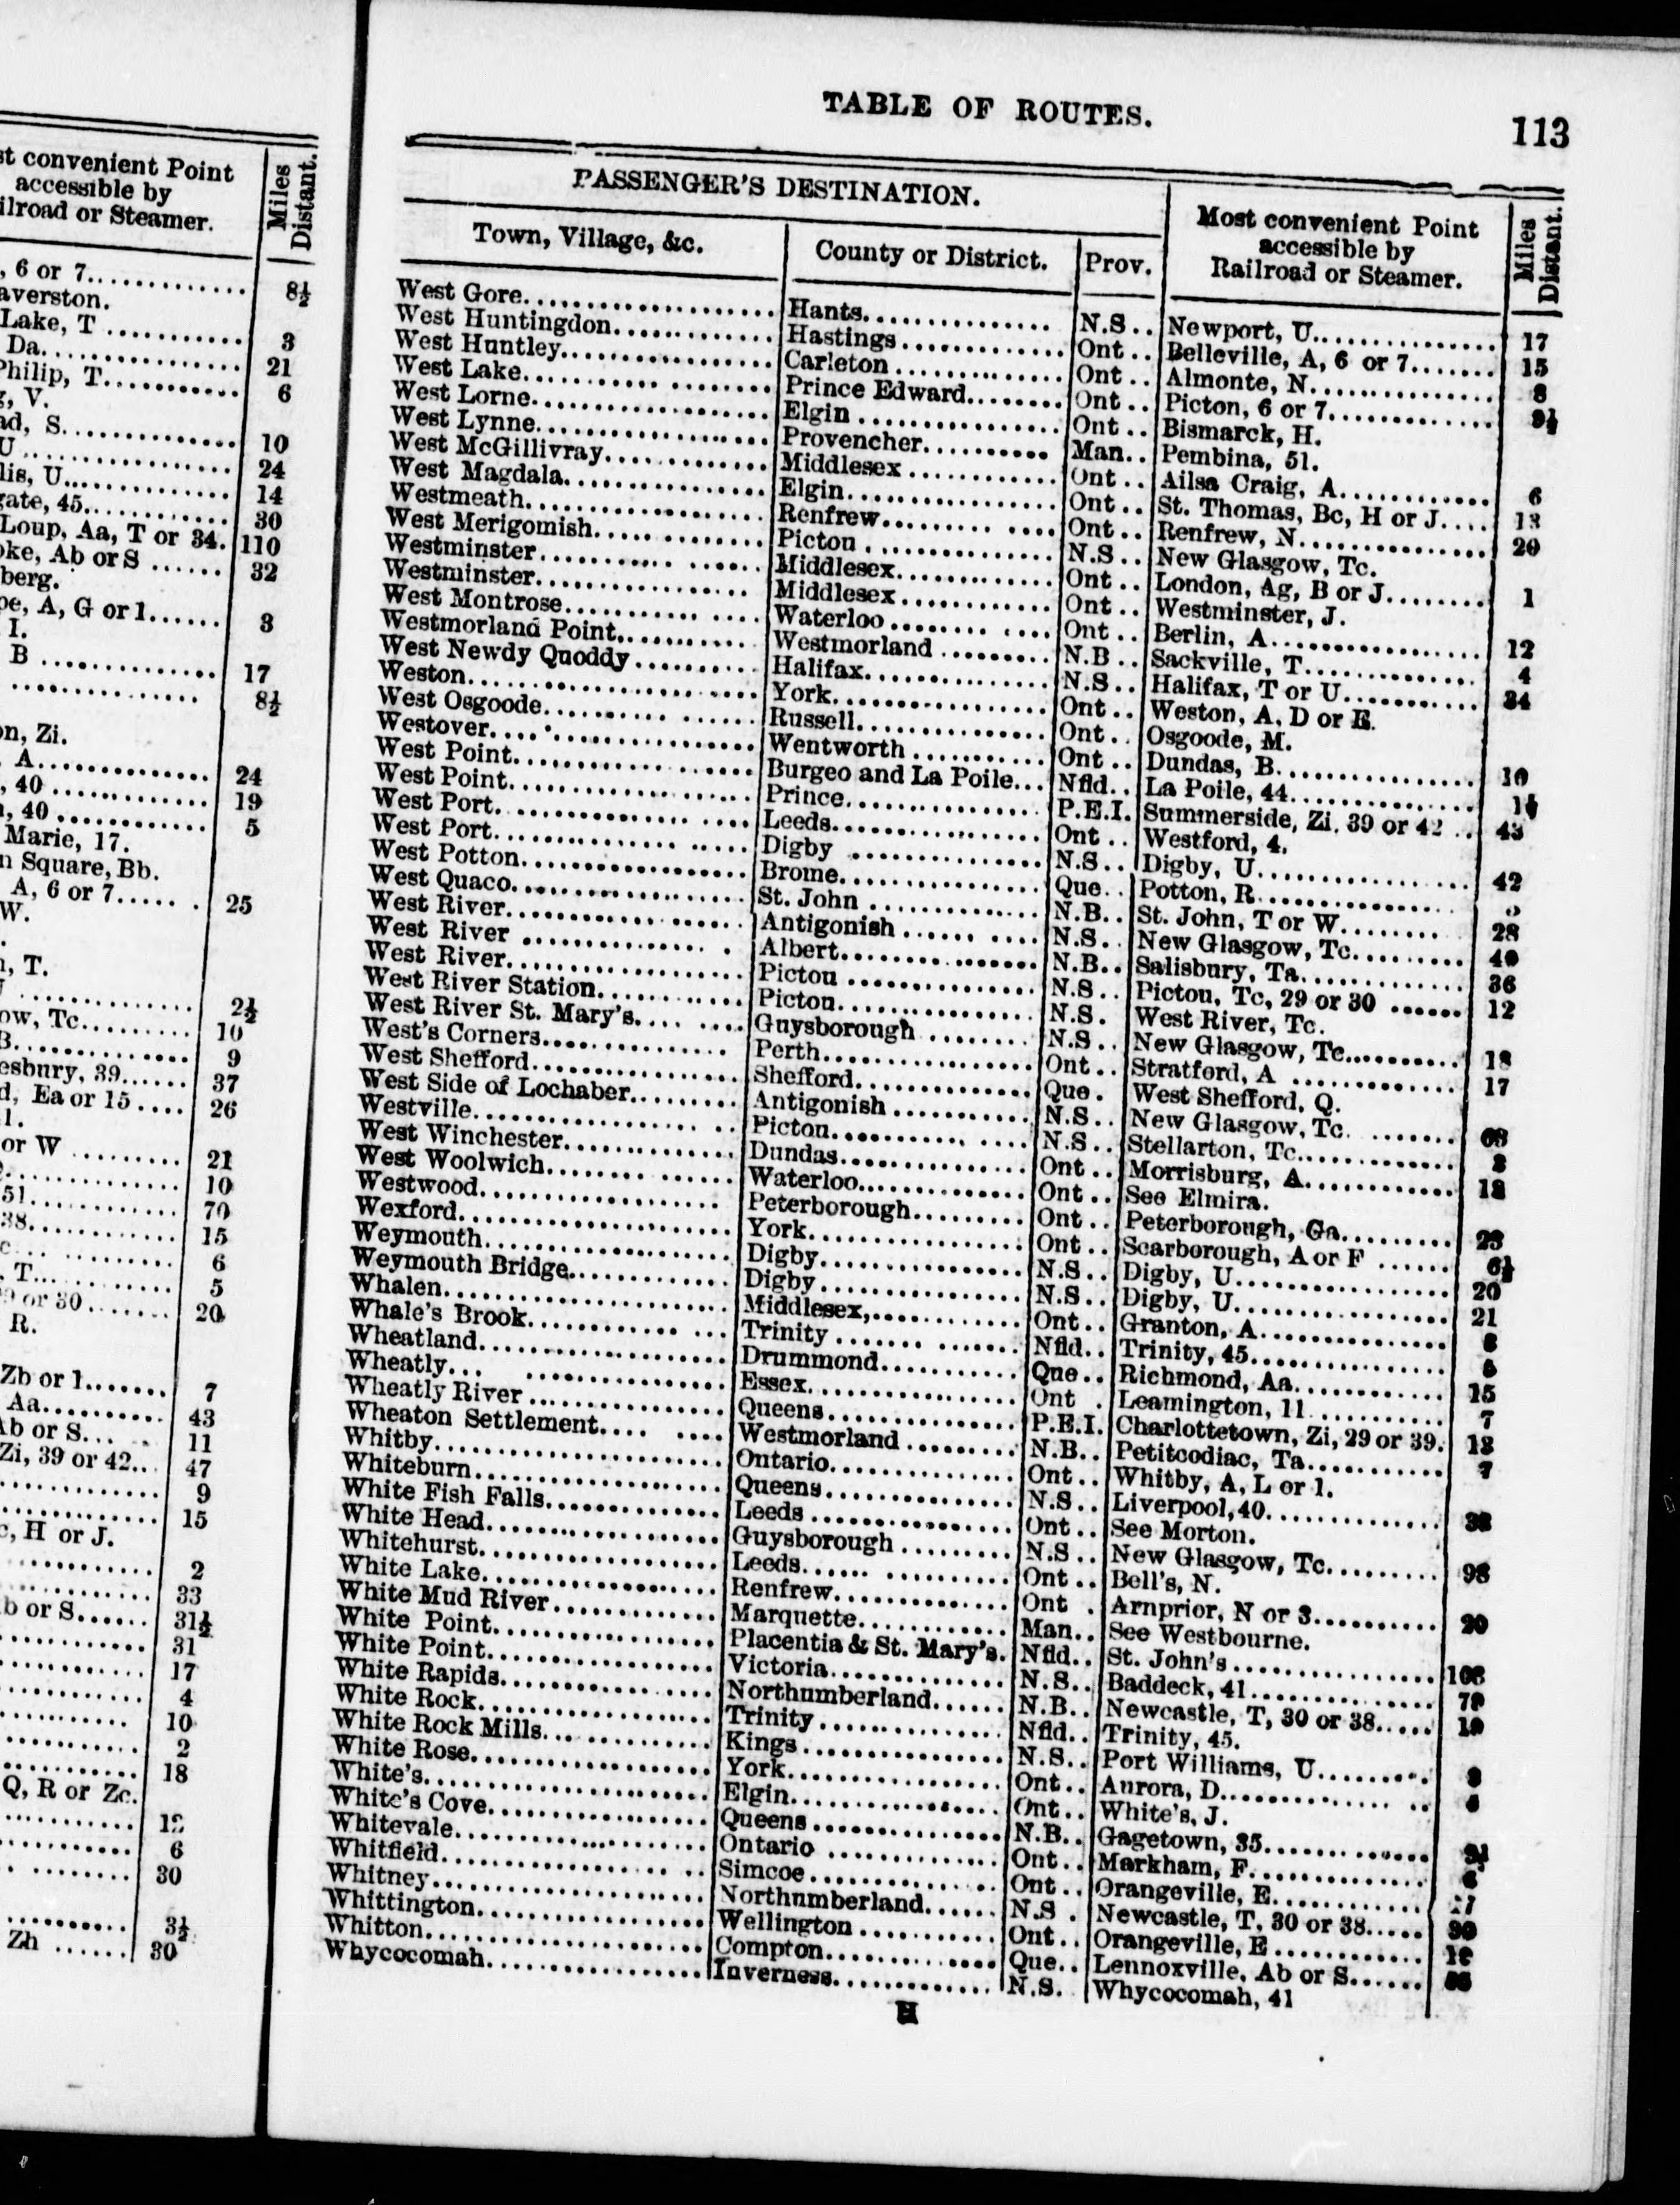 st convenient Point
accessible by
ilroad or Steamer.
Miles
Distant.
, 6 or 7............. 8½
averston.
Lake, T ............ 3
Da................ 21
Philip, T........... 6
g, V.
ad, S.............. 10
U ................. 24
lis, U.............. 14
gate, 45............ 30
Loup, Aa, T or 34. 110
oke, Ab or S ...... 32
berg.
pe, A, G or 1...... 3
I.
B ............... 17
................ 8½
on, Zi.
A............... 24
, 40 ............. 19
, 40 ............. 5
Marie, 17.
n Square, Bb.
A, 6 or 7...... 25
W.
, T.
................ 2½
ow, Tc......... 10
B............... 9
esbury, 39...... 37
d, Ea or 15.... 26
1.
or W ......... 21
............... 10
51............. 70
38............. 15
c............. 6
, T............ 5
or 30....... 20
R.
Zb or 1....... 7
Aa.......... 43
Ab or S...... 11
Zi, 39 or 42... 47
............... 9
............... 15
c, H or J.
............. 2
............. 33
b or S...... 31½
............. 31
............. 17
............. 4
............. 10
............. 2
............. 18
Q, R or Zc.
............
............ 6
............ 30
............ 3½
Zh ...... 30
TABLE OF ROUTES.
113
PASSENGER'S DESTINATION.
Most convenient Point
accessible by
Railroad or Steamer.
Miles
Distant.
Town, Village, &c. County or District. Prov.
West Gore.......... Hants.......... N.S.. Newport, U.......... 17
West Huntingdon.......... Hastings.......... Ont.. Belleville, A, 6 or 7....... 15
West Huntley.......... Carleton.......... Ont.. Almonte, N.......... 8
West Lake.......... Prince Edward........ Ont.. Picton, 6 or 7.......... 9½
West Lorne.......... Elgin.......... Ont.. Bismarck, H.
West Lynne.......... Provencher.......... Man.. Pembina, 51.
West McGillivray.......... Middlesex.......... Ont.. Ailsa Craig, A.......... 6
West Magdala.......... Elgin.......... Ont.. St. Thomas, Bc, H or J.... 13
Westmeath.......... Renfrew.......... Ont.. Renfrew, N.......... 20
West Merigomish.......... Pictou.......... N.S.. New Glasgow, Tc.
Westminster.......... Middlesex.......... Ont.. London, Ag, B or J........ 1
Westminster.......... Middlesex.......... Ont.. Westminster, J.
West Montrose.......... Waterloo.......... Ont.. Berlin, A.......... 12
Westmorland Point.......... Westmorland.......... N.B.. Sackville, T.......... 4
West Newdy Quoddy.......... Halifax.......... N.S.. Halifax, T or U.......... 34
Weston.......... York.......... Ont.. Weston, A, D or E.
West Osgoode.......... Russell.......... Ont.. Osgoode, M.
Westover.......... Wentworth.......... Ont.. Dundas, B.......... 10
West Point.......... Burgeo and La Poile... Nfld.. La Poile, 44..........
West Point.......... Prince.......... P.E.I. Summerside, Zi, 39 or 42 .. 43
West Port.......... Leeds.......... Ont.. Westford, 4.
West Port.......... Digby.......... N.S.. Digby, U.......... 42
West Potton.......... Brome.......... Que.. Potton, R..........
West Quaco.......... St. John.......... N.B.. St. John, T or W......... 28
West River.......... Antigonish.......... N.S.. New Glasgow, Tc......... 40
West River.......... Albert.......... N.B.. Salisbury, Ta.......... 36
West River.......... Pictou.......... N.S.. Pictou, Tc, 29 or 30 ...... 12
West River Station.......... Pictou.......... N.S. West River, Tc.
West River St. Mary's.......... Guysborough.......... N.S.. New Glasgow, Tc.......... 18
West's Corners.......... Perth.......... Ont.. Stratford, A.......... 17
West Shefford.......... Shefford.......... Que. West Shefford, Q.
West Side of Lochaber......... Antigonish.......... N.S.. New Glasgow, Tc........ 68
Westville.......... Pictou.......... N.S.. Stellarton, Tc.......... 3
West Winchester.......... Dundas.......... Ont.. Morrisburg, A.......... 18
West Woolwich.......... Waterloo.......... Ont.. See Elmira.
Westwood.......... Peterborough......... Ont.. Peterborough, Ga.......... 23
Wexford.......... York.......... Ont.. Scarborough, A or F ...... 6½
Weymouth.......... Digby.......... N.S.. Digby, U.......... 20
Weymouth Bridge.......... Digby.......... N.S.. Digby, U.......... 21
Whalen.......... Middlesex,.......... Ont.. Granton, A..........
Whale's Brook.......... Trinity.......... Nfld.. Trinity, 45..........
Wheatland.......... Drummond.......... Que.. Richmond, Aa.......... 15
Wheatly.......... Essex.......... Ont . Leamington, 11.......... 7
Wheatly River.......... Queens.......... P.E.I. Charlottetown, Zi, 29 or 39. 13
Wheaton Settlement.......... Westmorland.......... N.B.. Petitcodiac, Ta.......... 7
Whitby.......... Ontario.......... Ont.. Whitby, A, L or 1.
Whiteburn.......... Queens.......... N.S.. Liverpool, 40..........
White Fish Falls.......... Leeds.......... Ont.. See Morton.
White Head.......... Guysborough.......... N.S.. New Glasgow, Tc......... 98
Whitehurst.......... Leeds.......... Ont.. Bell's, N.
White Lake.......... Renfrew.......... Ont . Arnprior, N or 3.......... 20
White Mud River.......... Marquette.......... Man.. See Westbourne.
White Point.......... Placentia & St. Mary's. Nfld.. St. John's..........
White Point.......... Victoria.......... N.S.. Baddeck, 41.......... 79
White Rapids.......... Northumberland...... N.B.. Newcastle, T, 30 or 38..... 19
White Rock.......... Trinity.......... Nfld.. Trinity, 45.
White Rock Mills.......... Kings.......... N.S.. Port Williams, U..........
White Rose.......... York.......... Ont.. Aurora, D..........
White's.......... Elgin.......... Ont.. White's, J.
White's Cove.......... Queens.......... N.B.. Gagetown, 35..........
Whitevale.......... Ontario.......... Ont.. Markham, F..........
Whitfield.......... Simcoe.......... Ont.. Orangeville, E..........
Whitney.......... Northumberland...... N.S . Newcastle, T, 30 or 38.....
Whittington.......... Wellington.......... Ont.. Orangeville, E..........
Whitton.......... Compton.......... Que.. Lennoxville, Ab or S......
Whycocomah.......... Inverness.......... N.S. Whycocomah, 41
H